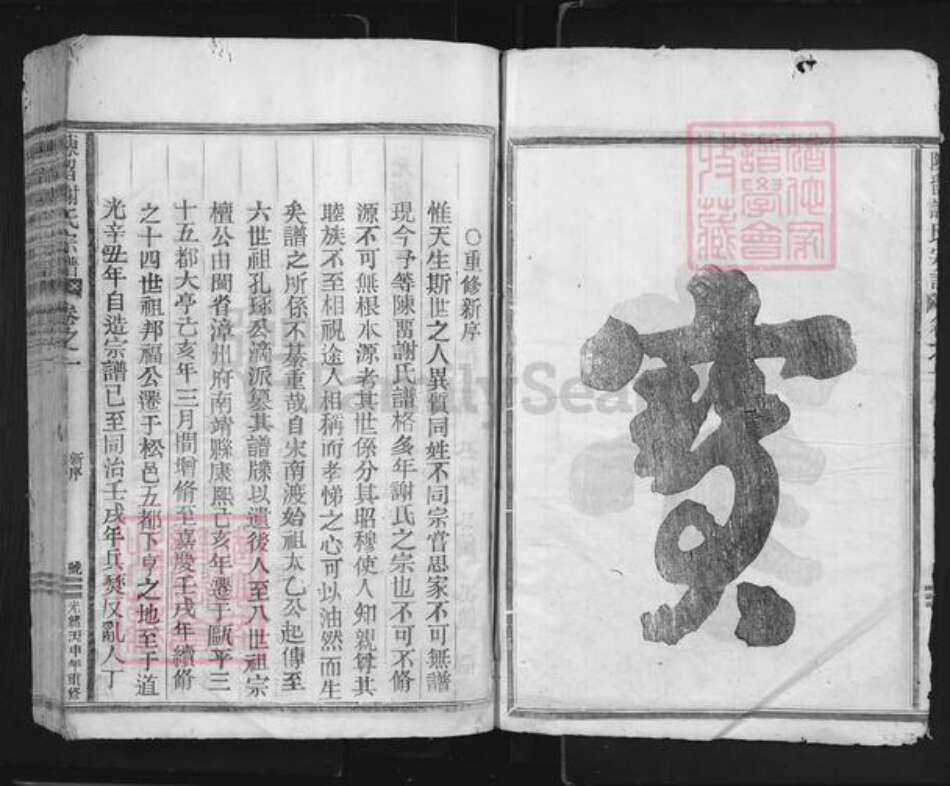 寶
○重修新序
惟天生斯世之人異質同姓不同宗甞思家不可無譜
現今予等陳畱謝氏譜格多年謝氏之宗也不可不脩
源不可無根本源考其世係分其昭穆使人知親尊其
睦族不至相視途人相稱而孝悌之心可以油然而生
矣譜之所係不綦重哉自宋南渡始祖太乙公起傳至
六世祖孔琢公滴派纂其譜牒以遺後人至八世祖宗
檀公由閩省漳州府南靖縣康熙己亥年遷于甌平三
十五都大亭亡亥年三月間增脩至嘉慶壬戌年續脩
之十四世祖邦福公遷于松邑五都下亨之地至于道
光辛丑年自造宗譜已至同治壬戌年兵燹反亂人丁
陳畱謝氏宗譜 卷之一 新序 號 光緒丙申年重修
FamilySearch